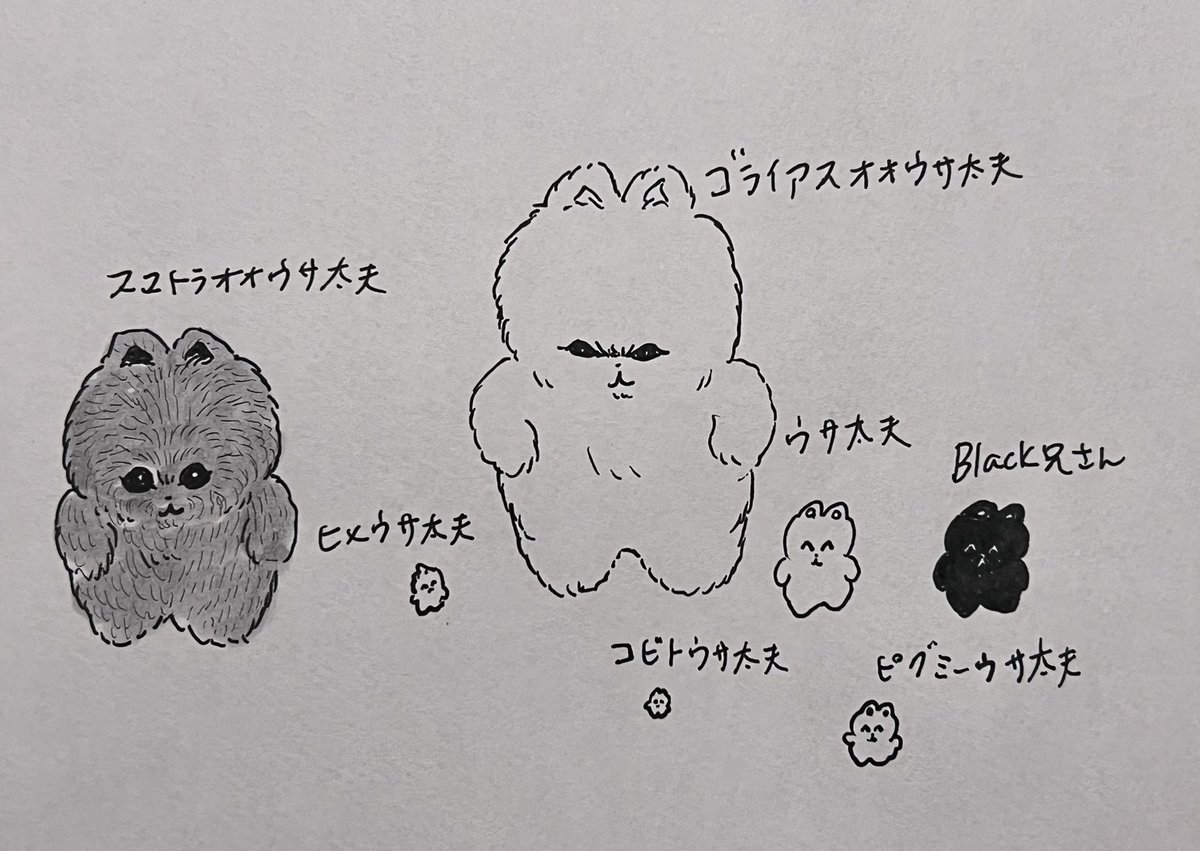 ゴライアスオオウサ太夫
スマトラオオウサ太夫
ウサ太夫
Black兄さん
ヒメウサ太夫
コビトウサ太夫
ピグミーウサ太夫